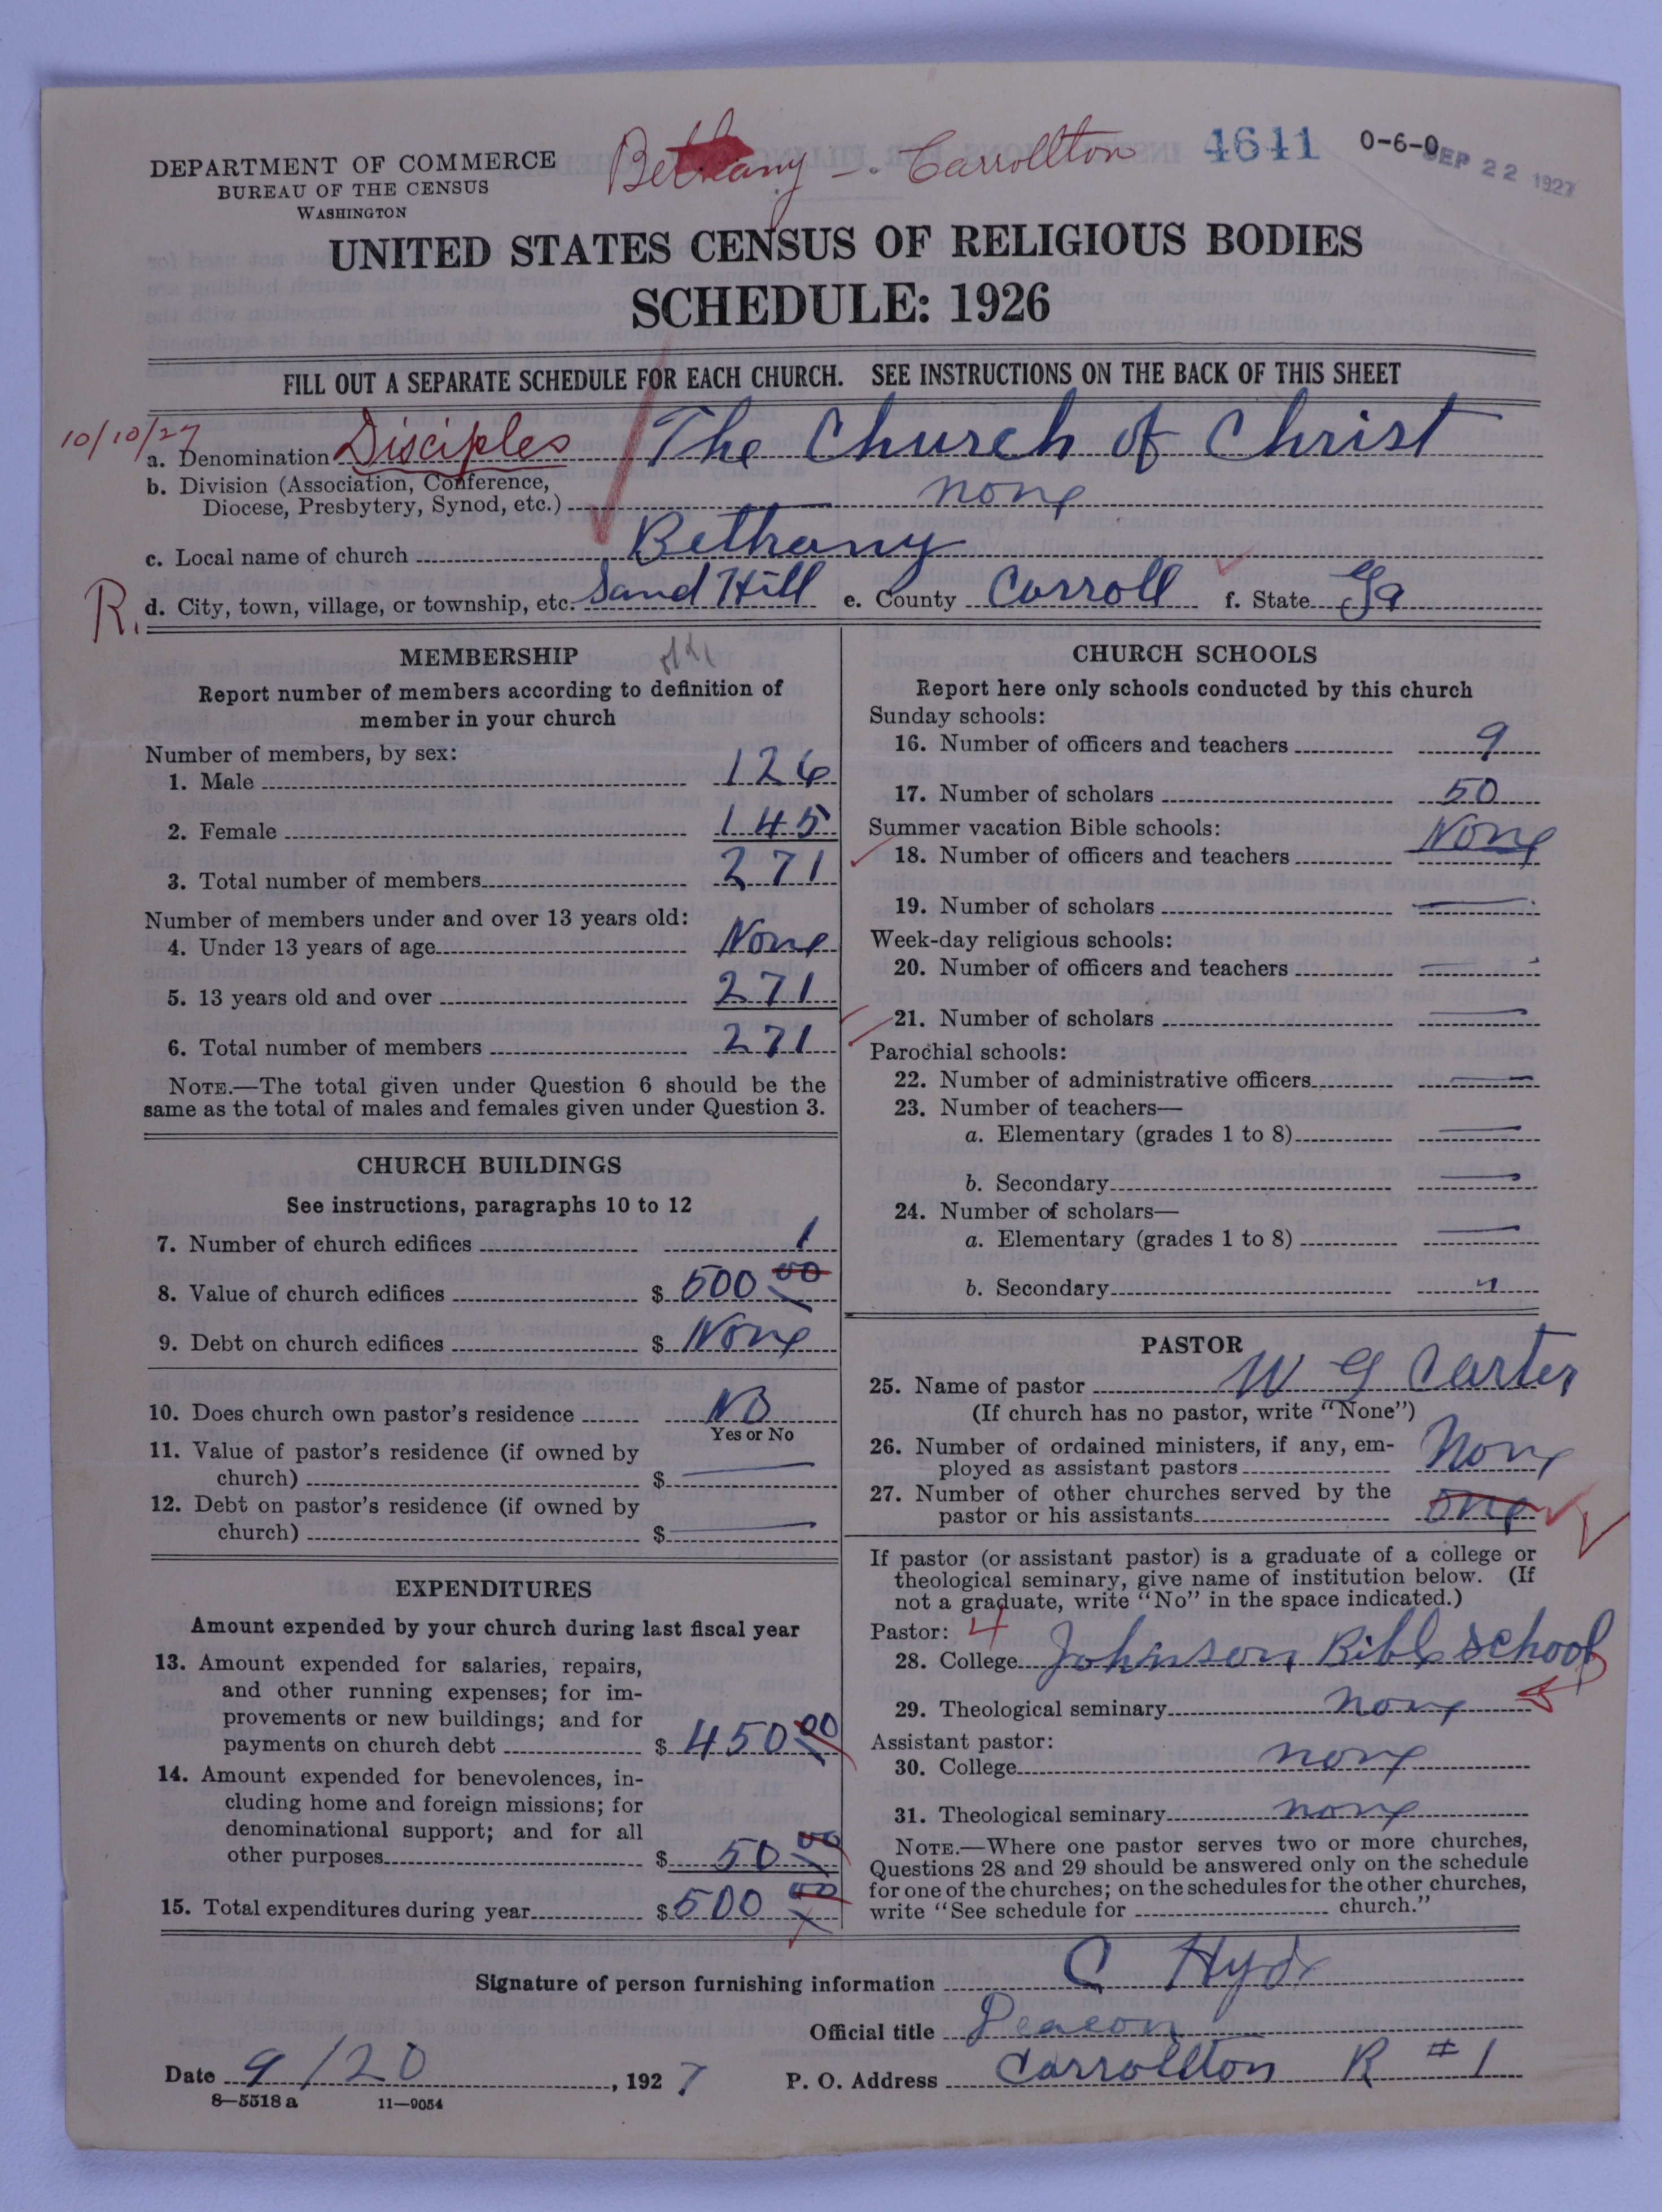 Bethany - Carrollton 4641 0-6-0 SEP 22 1927
DEPARTMENT OF COMMERCE
BUREAU OF THE CENSUS
WASHINGTON
UNITED STATES CENSUS OF RELIGIOUS BODIES
SCHEDULE: 1926
FILL OUT A SEPARATE SCHEDULE FOR EACH CHURCH. SEE INSTRUCTIONS ON THE BACK OF THIS SHEET
10/10/27
a. Denomination Disciples The Church of Christ
b. Division (Association, Conference,
Diocese, Presbytery, Synod, etc.) none
c. Local name of church Bethany
R. d. City, town, village, or township, etc. Sand Hill e. County Carroll f. State Ga
MEMBERSHIP
Report number of members according to definition of
member in your church
Number of members, by sex:
1. Male 126
2. Female 145
3. Total number of members 271
Number of members under and over 13 years old:
4. Under 13 years of age None
5. 13 years old and over 271
6. Total number of members 271
NOTE.—The total given under Question 6 should be the
same as the total of males and females given under Question 3.
CHURCH BUILDINGS
See instructions, paragraphs 10 to 12
7. Number of church edifices 1
8. Value of church edifices $ 500 00
9. Debt on church edifices $ None
10. Does church own pastor's residence NO
Yes or No
11. Value of pastor's residence (if owned by
church) $
12. Debt on pastor's residence (if owned by
church) $
EXPENDITURES
Amount expended by your church during last fiscal year
13. Amount expended for salaries, repairs,
and other running expenses; for im-
provements or new buildings; and for
payments on church debt $ 450 00
14. Amount expended for benevolences, in-
cluding home and foreign missions; for
denominational support; and for all
other purposes $ 50 00
15. Total expenditures during year $ 500 00
CHURCH SCHOOLS
Report here only schools conducted by this church
Sunday schools:
16. Number of officers and teachers 9
17. Number of scholars 50
Summer vacation Bible schools:
18. Number of officers and teachers None
19. Number of scholars
Week-day religious schools:
20. Number of officers and teachers
21. Number of scholars
Parochial schools:
22. Number of administrative officers
23. Number of teachers—
a. Elementary (grades 1 to 8)
b. Secondary
24. Number of scholars—
a. Elementary (grades 1 to 8)
b. Secondary "
PASTOR
25. Name of pastor W G Carter
(If church has no pastor, write "None")
26. Number of ordained ministers, if any, em-
ployed as assistant pastors None
27. Number of other churches served by the
pastor or his assistants one
If pastor (or assistant pastor) is a graduate of a college or
theological seminary, give name of institution below. (If
not a graduate, write "No" in the space indicated.)
Pastor: 4
28. College Johnson Bible School
29. Theological seminary none
Assistant pastor:
30. College none
31. Theological seminary none
NOTE.—Where one pastor serves two or more churches,
Questions 28 and 29 should be answered only on the schedule
for one of the churches; on the schedules for the other churches,
write "See schedule for church."
Signature of person furnishing information C Hyde
Official title Deacon
Date 9/20, 1927 P. O. Address Carrollton R #1
8—5518 a 11—9054